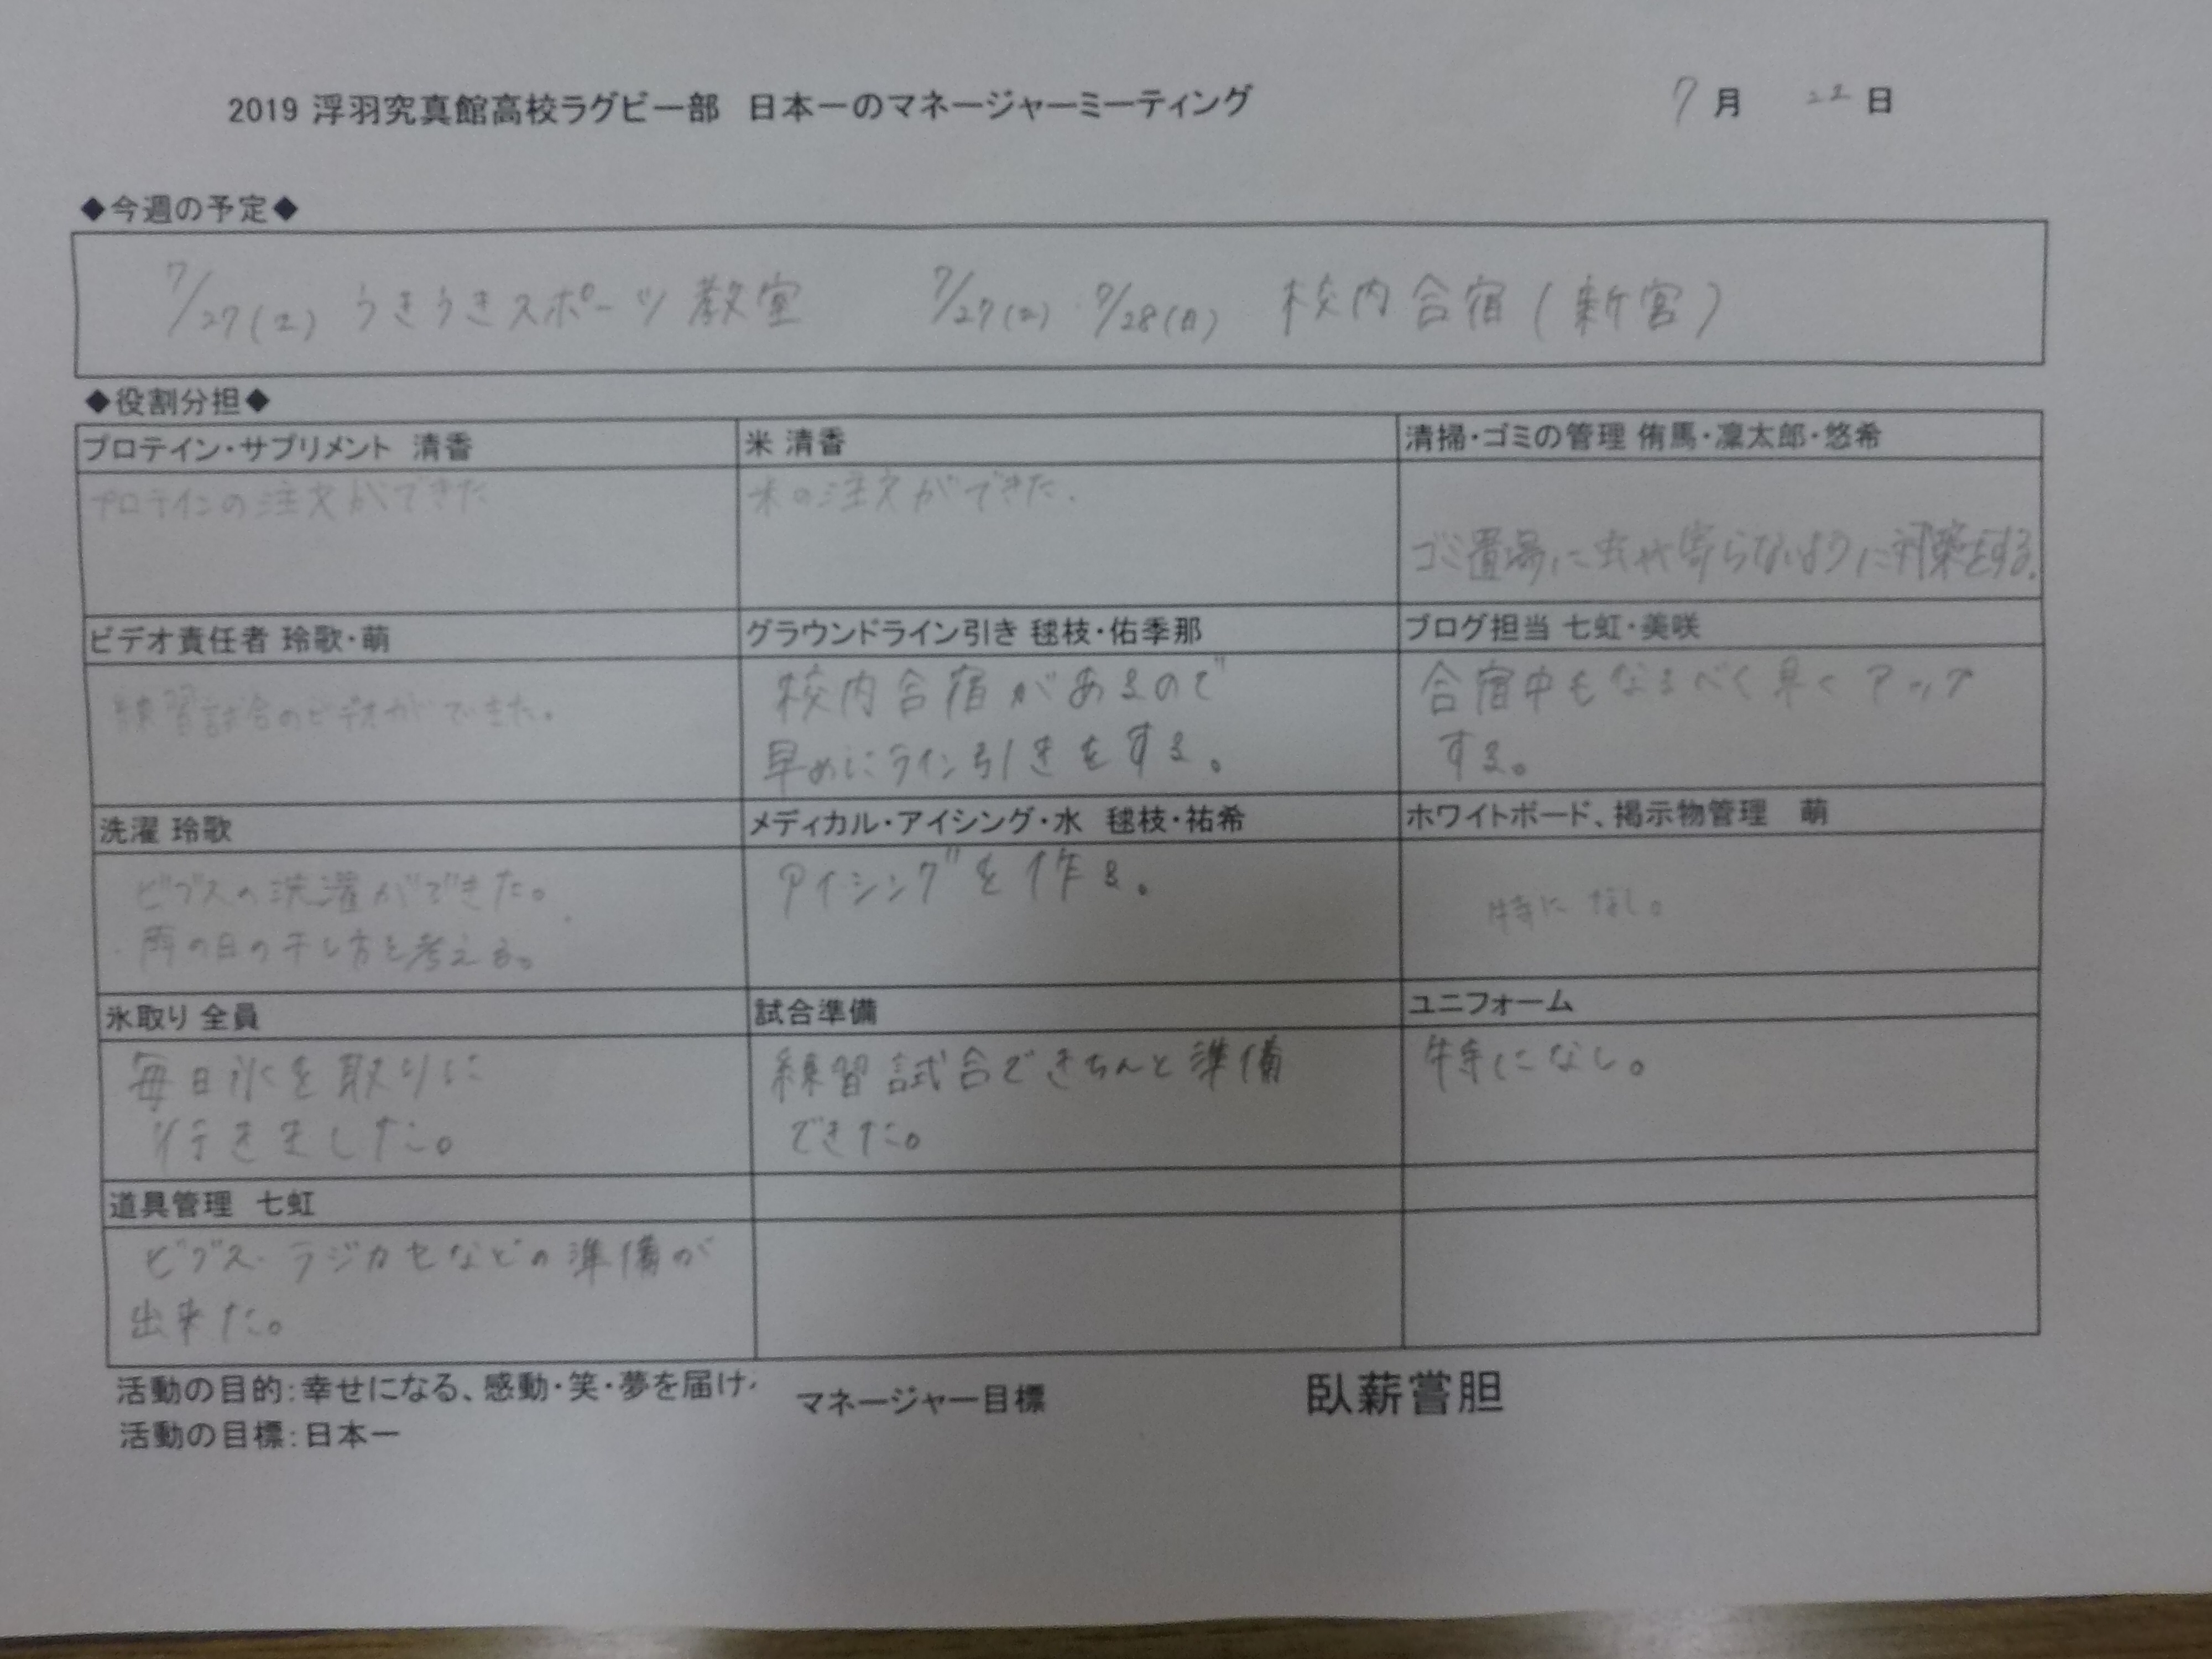 2019 浮羽究真館高校ラグビー部 日本一のマネージャーミーティング 7月 22日
◆今週の予定◆
7/27(土) うきうきスポーツ教室 7/27(土) 7/28(日) 校内合宿(新宮)
◆役割分担◆
プロテイン・サプリメント 清香
米 清香
清掃・ゴミの管理 侑馬・凜太郎・悠希
プロテインの注文ができた
米の注文ができた。
ゴミ置場に虫が寄らないように対策をする。
ビデオ責任者 玲歌・萌
グラウンドライン引き 毬枝・佑季那
ブログ担当 七虹・美咲
練習試合のビデオができた。
校内合宿があるので
早めにライン引きをする。
合宿中もなるべく早くアップ
する。
洗濯 玲歌
メディカル・アイシング・水 毬枝・祐希
ホワイトボード、掲示物管理 萌
ビブスの洗濯ができた。
・雨の日の干し方を考える。
アイシングを作る。
特になし。
氷取り 全員
試合準備
ユニフォーム
毎日氷を取りに
行きました。
練習試合できちんと準備
できた。
特になし。
道具管理 七虹
ビブス・ラジカセなどの準備が
出来た。
活動の目的:幸せになる、感動・笑・夢を届け
マネージャー目標 臥薪嘗胆
活動の目標:日本一